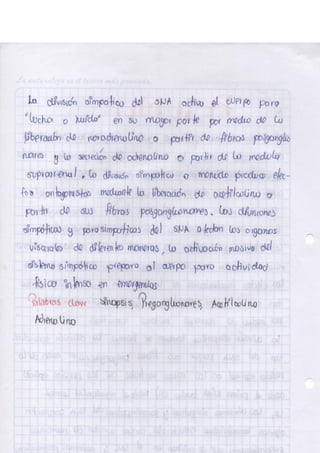 La naturaleza es el tesoro más preciado.
La división simpatica del SNA activa el cuerpo para
"Lucha o huida" en su mayor parte por medio de la
liberación de noradrenalina a partir de fibras posganglio
nares y la secreción de adrenalina a partir de la medula
suprarrenal. La división simpatica a menudo produce efec-
tos antagonistas mediante la liberación de acetilcolina a
partir de sus fibras posganglionares, las divisiones
simpáticas y parasimpaticas del SNA afectan los organos
viscerales de diferentes maneras, la activación masiva del
sistema simpático prepara al cuerpo para actividad
fisica intensa en emergencias
Palabras clave Sinapsis, Preganglionares, Acetilcolina
Adrenalina